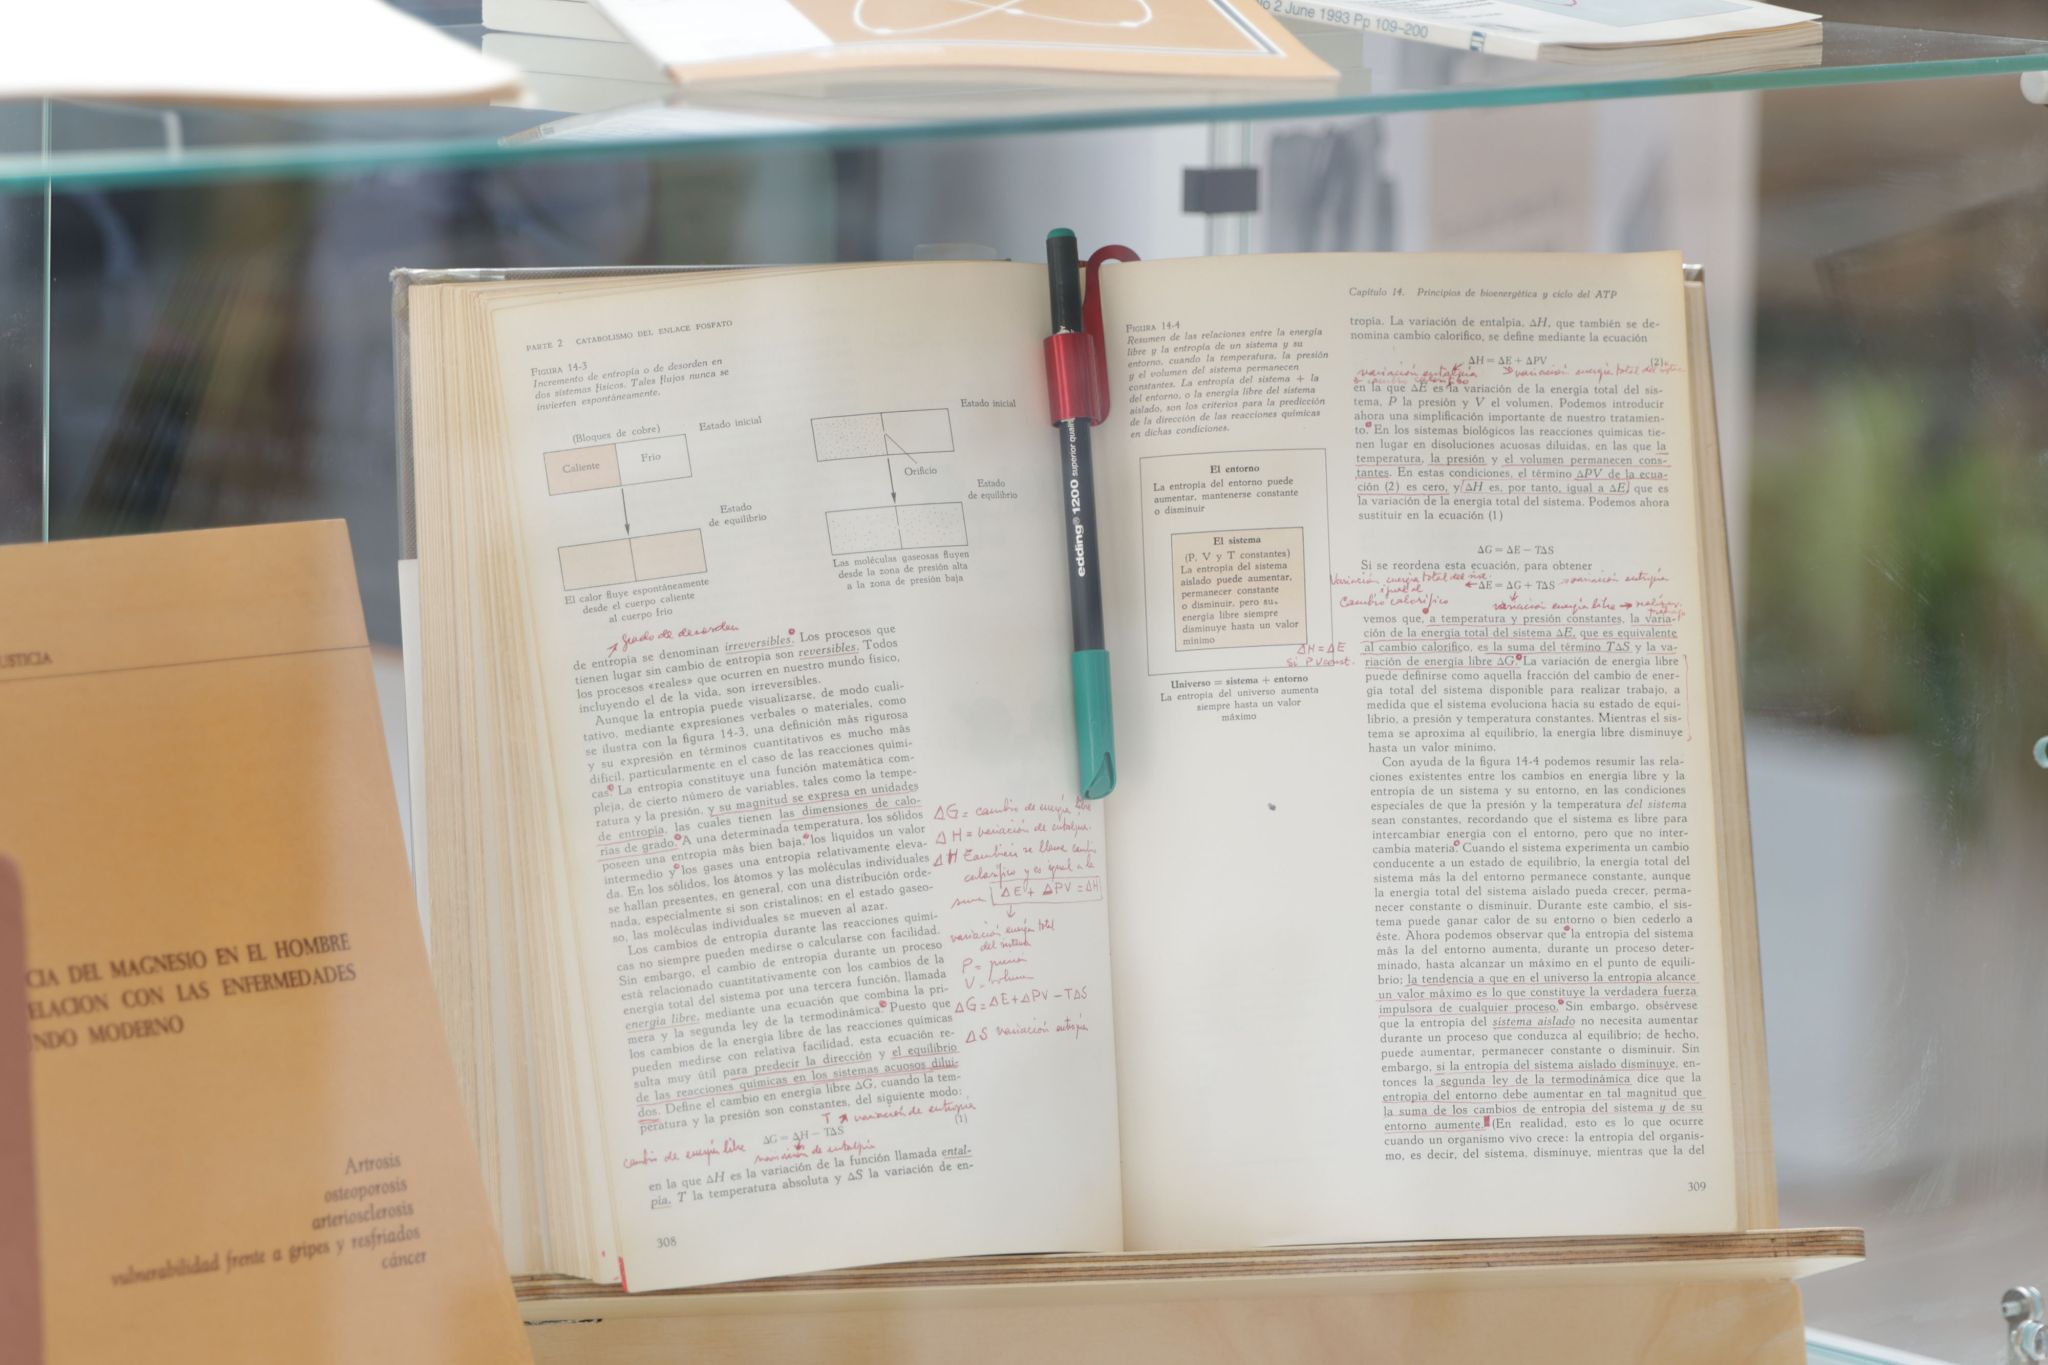 No 2 June 1993 Pp 109-200
USTICIA
CIA DEL MAGNESIO EN EL HOMBRE
ELACION CON LAS ENFERMEDADES
NDO MODERNO
Artrosis
osteoporosis
arteriosclerosis
vulnerabilidad frente a gripes y resfriados
cáncer
PARTE 2 CATABOLISMO DEL ENLACE FOSFATO
FIGURA 14-3
Incremento de entropía o de desorden en
dos sistemas físicos. Tales flujos nunca se
invierten espontáneamente.
(Bloques de cobre)
Estado inicial
Caliente
Frío
Estado
de equilibrio
El calor fluye espontáneamente
desde el cuerpo caliente
al cuerpo frío
Estado inicial
Orificio
Estado
de equilibrio
Las moléculas gaseosas fluyen
desde la zona de presión alta
a la zona de presión baja
grado de desorden
de entropía se denominan irreversibles. Los procesos que
tienen lugar sin cambio de entropía son reversibles. Todos
los procesos «reales» que ocurren en nuestro mundo físico,
incluyendo el de la vida, son irreversibles.
Aunque la entropía puede visualizarse, de modo cuali-
tativo, mediante expresiones verbales o materiales, como
se ilustra con la figura 14-3, una definición más rigurosa
y su expresión en términos cuantitativos es mucho más
difícil, particularmente en el caso de las reacciones quími-
cas. La entropía constituye una función matemática com-
pleja, de cierto número de variables, tales como la tempe-
ratura y la presión, y su magnitud se expresa en unidades
de entropía, las cuales tienen las dimensiones de calo-
rías de grado. A una determinada temperatura, los sólidos
poseen una entropía más bien baja, los líquidos un valor
intermedio y los gases una entropía relativamente eleva-
da. En los sólidos, los átomos y las moléculas individuales
se hallan presentes, en general, con una distribución orde-
nada, especialmente si son cristalinos; en el estado gaseo-
so, las moléculas individuales se mueven al azar.
Los cambios de entropía durante las reacciones quími-
cas no siempre pueden medirse o calcularse con facilidad.
Sin embargo, el cambio de entropía durante un proceso
está relacionado cuantitativamente con los cambios de la
energía total del sistema por una tercera función, llamada
energía libre, mediante una ecuación que combina la pri-
mera y la segunda ley de la termodinámica. Puesto que
los cambios de la energía libre de las reacciones químicas
pueden medirse con relativa facilidad, esta ecuación re-
sulta muy útil para predecir la dirección y el equilibrio
de las reacciones químicas en los sistemas acuosos dilui-
dos. Define el cambio en energía libre ΔG, cuando la tem-
peratura y la presión son constantes, del siguiente modo:
T variación de entropía
ΔG = ΔH − TΔS (1)
cambio de energía libre variación de entalpía
en la que ΔH es la variación de la función llamada ental-
pía, T la temperatura absoluta y ΔS la variación de en-
308
ΔG = cambio de energía libre
ΔH = variación de entalpía.
ΔH también se llama cambio
calorífico y es igual a la
suma ΔE + ΔPV = ΔH
variación energía total
del sistema
P = presión
V = volumen
ΔG = ΔE + ΔPV − TΔS
ΔS variación entropía
edding® 1200 superior quality
Capítulo 14. Principios de bioenergética y ciclo del ATP
FIGURA 14-4
Resumen de las relaciones entre la energía
libre y la entropía de un sistema y su
entorno, cuando la temperatura, la presión
y el volumen del sistema permanecen
constantes. La entropía del sistema + la
del entorno, o la energía libre del sistema
aislado, son los criterios para la predicción
de la dirección de las reacciones químicas
en dichas condiciones.
El entorno
La entropía del entorno puede
aumentar, mantenerse constante
o disminuir
El sistema
(P, V y T constantes)
La entropía del sistema
aislado puede aumentar,
permanecer constante
o disminuir, pero su
energía libre siempre
disminuye hasta un valor
mínimo
ΔH = ΔE
si PV const.
Universo = sistema + entorno
La entropía del universo aumenta
siempre hasta un valor
máximo
tropía. La variación de entalpía, ΔH, que también se de-
nomina cambio calorífico, se define mediante la ecuación
ΔH = ΔE + ΔPV (2)
variación entalpía variación energía total del
o cambio calorífico
en la que ΔE es la variación de la energía total del sis-
tema, P la presión y V el volumen. Podemos introducir
ahora una simplificación importante de nuestro tratamien-
to. En los sistemas biológicos las reacciones químicas tie-
nen lugar en disoluciones acuosas diluidas, en las que la
temperatura, la presión y el volumen permanecen cons-
tantes. En estas condiciones, el término ΔPV de la ecua-
ción (2) es cero, y ΔH es, por tanto, igual a ΔE, que es
la variación de la energía total del sistema. Podemos ahora
sustituir en la ecuación (1)
ΔG = ΔE − TΔS
Si se reordena esta ecuación, para obtener
Variación energía total del sist.
igual al
Cambio calorífico
ΔE = ΔG + TΔS variación entropía
variación energía libre
vemos que, a temperatura y presión constantes, la varia-
ción de la energía total del sistema ΔE, que es equivalente
al cambio calorífico, es la suma del término TΔS y la va-
riación de energía libre ΔG. La variación de energía libre
puede definirse como aquella fracción del cambio de ener-
gía total del sistema disponible para realizar trabajo, a
medida que el sistema evoluciona hacia su estado de equi-
librio, a presión y temperatura constantes. Mientras el sis-
tema se aproxima al equilibrio, la energía libre disminuye
hasta un valor mínimo.
Con ayuda de la figura 14-4 podemos resumir las rela-
ciones existentes entre los cambios en energía libre y la
entropía de un sistema y su entorno, en las condiciones
especiales de que la presión y la temperatura del sistema
sean constantes, recordando que el sistema es libre para
intercambiar energía con el entorno, pero que no inter-
cambia materia. Cuando el sistema experimenta un cambio
conducente a un estado de equilibrio, la energía total del
sistema más la del entorno permanece constante, aunque
la energía total del sistema aislado pueda crecer, perma-
necer constante o disminuir. Durante este cambio, el sis-
tema puede ganar calor de su entorno o bien cederlo a
éste. Ahora podemos observar que la entropía del sistema
más la del entorno aumenta, durante un proceso deter-
minado, hasta alcanzar un máximo en el punto de equili-
brio; la tendencia a que en el universo la entropía alcance
un valor máximo es lo que constituye la verdadera fuerza
impulsora de cualquier proceso. Sin embargo, obsérvese
que la entropía del sistema aislado no necesita aumentar
durante un proceso que conduzca al equilibrio; de hecho,
puede aumentar, permanecer constante o disminuir. Sin
embargo, si la entropía del sistema aislado disminuye, en-
tonces la segunda ley de la termodinámica dice que la
entropía del entorno debe aumentar en tal magnitud que
la suma de los cambios de entropía del sistema y de su
entorno aumente. (En realidad, esto es lo que ocurre
cuando un organismo vivo crece: la entropía del organis-
mo, es decir, del sistema, disminuye, mientras que la del
309